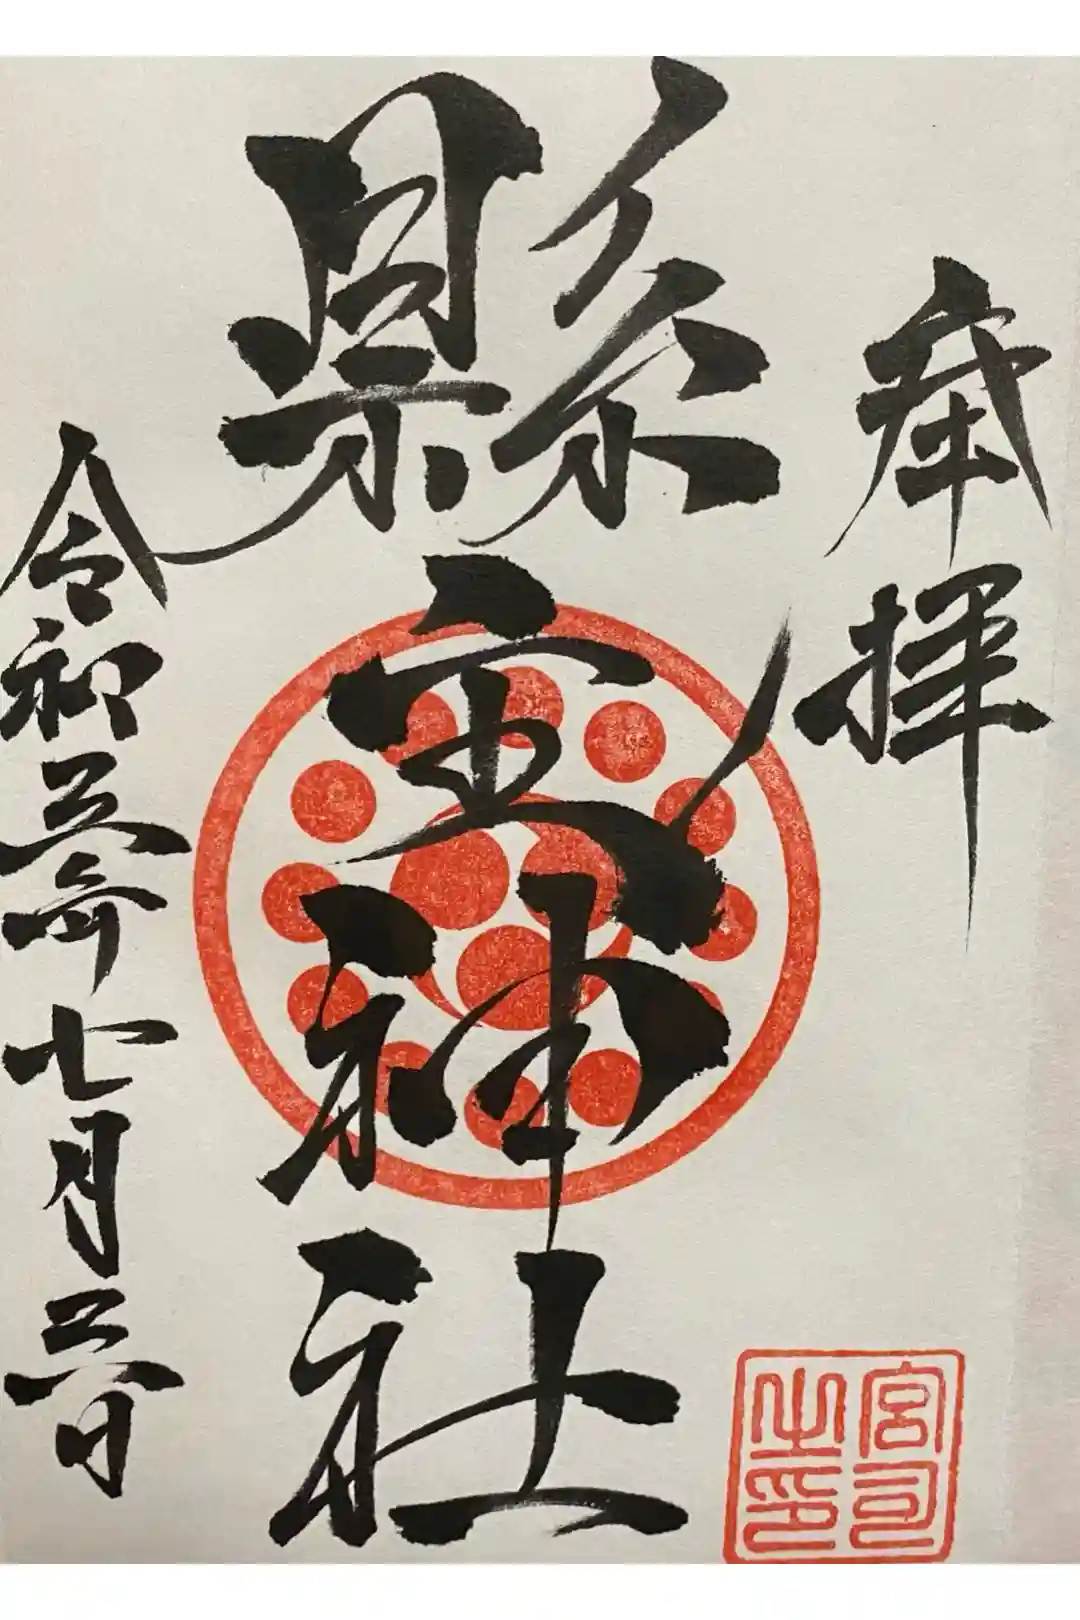 奉拝
縣宝神社
令和三年七月三日
宮司之印